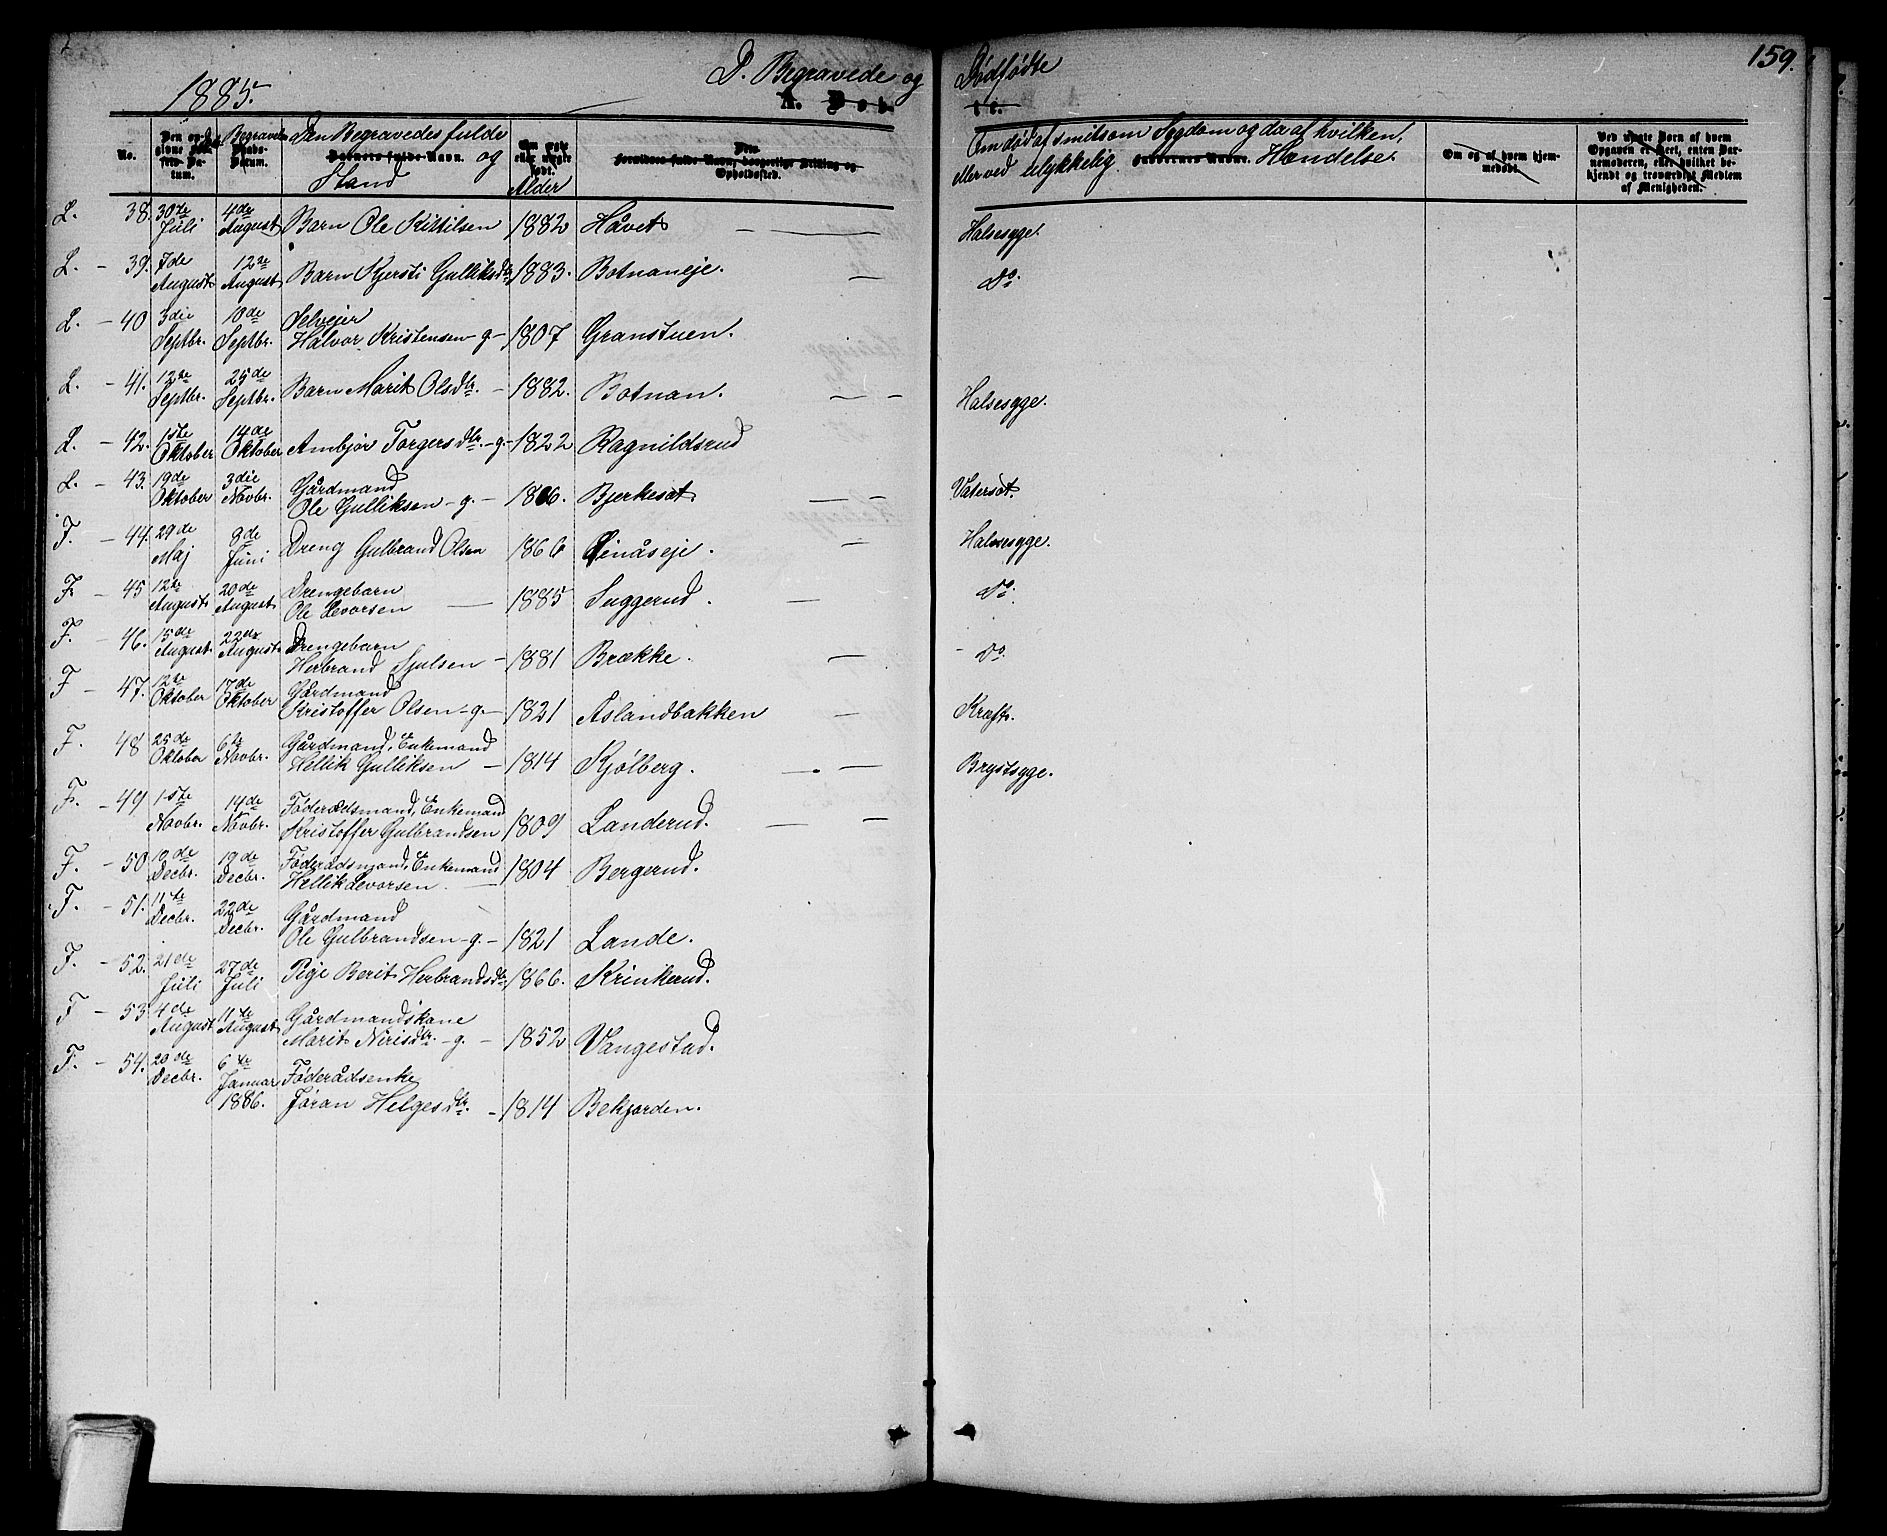 159.
D. Begravede og Dødfødte
1885.
A. Døbte.
No. Den opgivne Dato. Begravelses Datum. Den Begravedes fulde Navn og Stand Alder Om død af smitsom Sygdom og da af hvilken, eller ved ulykkelig Hændelse.
Barnets fulde Navn.
Om ægte eller uægte født.
Forældres fulde Navn, borgerlige Stilling og Opholdssted.
Faddernes Navne.
Om og af hvem hjemmedøbt.
Ved uægte Børn af hvem Opgaven er skeet, enten Barnemoderen, eller hvilket bekjendt og troværdigt Medlem af Menigheden.
L. 38. 30te Juli 4de August Barn Ole Kittilsen 1882 Håvet — Halsesyge.
L. - 39. 7de August 12te August Barn Kjersti Gulliksdtr. 1883. Botnaneje. — Do.
L. - 40 3die Septbr. 10de Septbr. Selvejer
Halvor Kristensen - g - 1807 Granstuen.
L. - 41. 12te Septbr. 25de Septbr. Barn Marit Olsdtr. - 1882. Botnan. — Halsesyge.
L. - 42. 1ste Oktober 14de Oktober Ambjør Torgersdtr. - g. - 1822 Ragnildsrud
L. - 43. 19de Oktober 3die Novbr. Gårdmand
Ole Gulliksen - g. - 1806. Bjerkesat. — Vatersot.
F. - 44. 29de Maj 8de Juni Dreng Gulbrand Olsen 1866 Linåseje. — Halsesyge.
F. - 45 12te August 20de August Drengebarn
Ole Levorsen — 1885 Suggerud. — Do.
F. - 46. 15de August 22de August Drengebarn
Herbrand Sjulsen - 1881 Brække. — Do.
F - 47. 12te Oktober 17de Oktober Gårdmand
Kristoffer Olsen - g. - 1821 Aslandbakken — Kræft.
F. - 48 25de Oktober 6te Novbr. Gårdmand, Enkemand
Hellik Gulliksen - 1814 Kjølberg. — Brystsyge.
F. - 49 1ste Novbr. 14de Novbr. Føderådsmand, Enkemand
Kristoffer Gulbrandsen 1809 Landerud. —
F. - 50. 10de Decbr. 19de Decbr. Føderådsmand, Enkemand
Hellik Levorsen. — 1804 Bergerud.
F. - 51. 11te Decbr. 22de Decbr. Gårdmand
Ole Gulbrandsen - g. - 1821 Lande.
F. - 52. 21de Juli 27de Juli Pige Berit Herbrandsdtr. 1866. Krinkerud.
F - 53. 4de August 11te August Gårdmandskone
Marit Nirisdtr. - g. - 1852 Vangestad.
F. - 54. 20de Decbr. 6te Januar 1886. Føderådsenke
Jøran Helgesdtr. - 1814 Bekjorden.